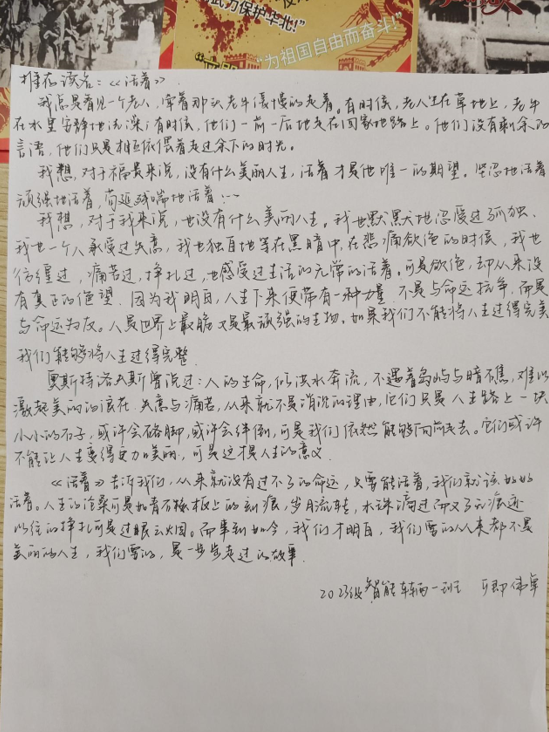 武力保护华北!"
"为祖国自由而奋斗!"
推荐读名:《活着》.
我总是看见一个老人,牵着那头老牛慢慢的走着。有时候,老人坐在草地上,老牛
在水里安静地洗澡;有时候,他们一前一后地走在回家地路上。他们没有剩余的
言语,他们只是相互依偎着走过余下的时光。
我想,对于福贵来说,没有什么美丽人生,活着才是他唯一的期望。坚忍地活着
顽强地活着,苟延残喘地活着……
我想,对于我来说,也没有什么美丽人生。我也默默地忍受过孤独、
我也一个人承受过失意,我也独自地等在黑暗中,在悲痛欲绝的时候,我也
彷徨过,痛苦过,挣扎过,也感受过生活的无常的活着。可是欲绝,却从来没
有真正的绝望.因为我明白,人生下来便带有一种力量.不是与命运抗争,而是
与命运为友。人是世界上最脆又是最顽强的生物。如果我们不能将人生过得完美
我们能够将人生过得完整.
奥斯特洛夫斯曾说过:人的生命,似洪水奔流,不遇着岛屿与暗礁,难以
激起美丽的浪花.失意与痛苦,从来就不是消沉的理由,它们只是人生路上一块
小小的石子,或许会硌脚,或许会绊倒,可是我们依然能够向前走去。它们或许
不能让人生变得更加美丽,可是这才是人生的意义.
《活着》告诉我们,从来就没有过不了的命运,只要能活着,我们就该好好的
活着。人生的沧桑可是如青石板板上的刻痕,岁月流转,水珠滴过而又了无痕迹
以往的挣扎可是过眼云烟。而事到如今,我们才明白,我们要的从来都不是
美丽的人生,我们要的,是一步步走过的故事.
2023级智能车辆一班 伟卓